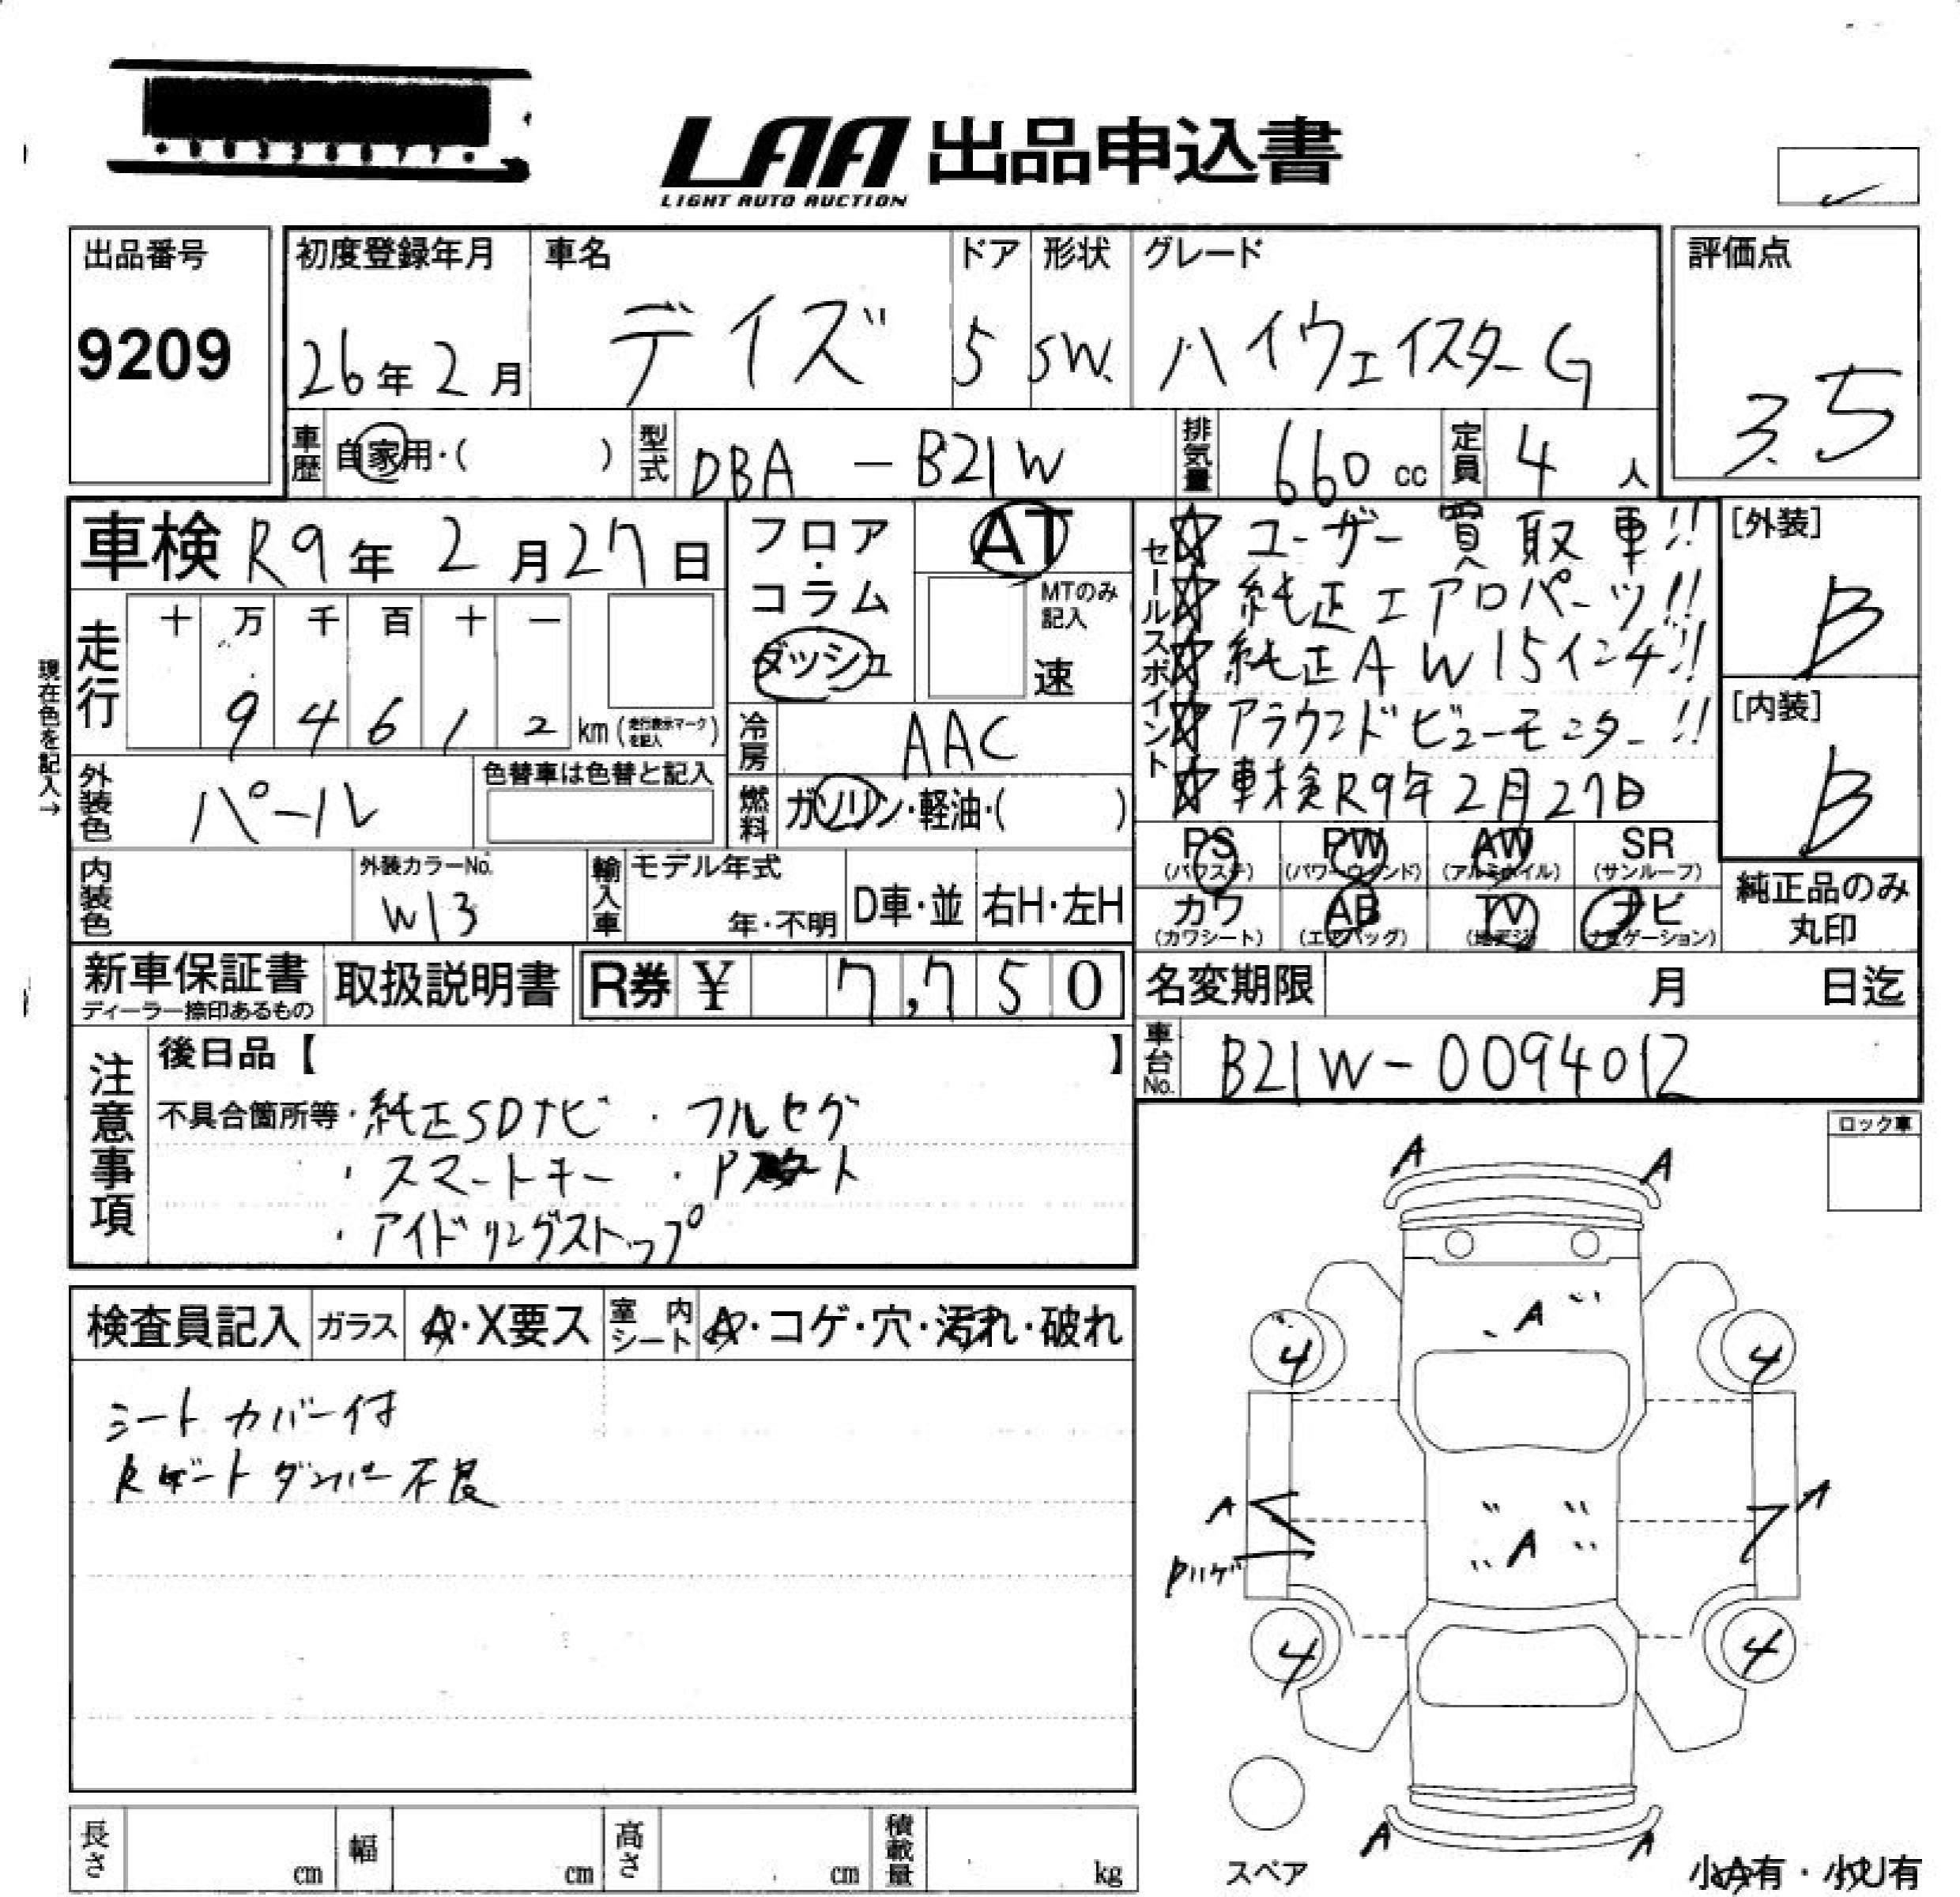 LAA 出品申込書
LIGHT AUTO AUCTION
出品番号
9209
初度登録年月
26年2月
車名
デイズ
ドア
5
形状
SW.
グレード
ハイウェイスターG
評価点
3.5
車歴
自家用・( )
型式
DBA - B21W
排気量
660 cc
定員
4人
車検 R9年2月27日
走行
十 万 千 百 十 一
9 4 6 1 2 km (走行表示マークを記入)
現在色を記入→
外装色
パール
色替車は色替と記入
内装色
外装カラーNo.
W13
フロア・コラム
ダッシュ
AT
MTのみ記入
速
冷房
AAC
燃料
ガソリン・軽油・( )
輸入車
モデル年式
年・不明
D車・並
右H・左H
セールスポイント
☆ユーザー買取車!!
☆純正エアロパーツ!!
☆純正AW15インチ!!
☆アラウンドビューモニター!!
☆車検R9年2月27日
[外装]
B
[内装]
B
PS (パワステ)
PW (パワーウインド)
AW (アルミホイル)
SR (サンルーフ)
カワ (カワシート)
AB (エアバッグ)
TV (地デジ)
ナビ (ナビゲーション)
純正品のみ丸印
新車保証書
ディーラー捺印あるもの
取扱説明書
R券 ¥ 7,750
名変期限 月 日迄
車台No.
B21W-0094012
注意事項
後日品【 】
不具合箇所等・純正SDナビ ・フルセグ
・スマートキー ・Pスタート
・アイドリングストップ
ロック車
検査員記入
ガラス
A・X要ス
室内シート
A・コゲ・穴・汚れ・破れ
シートカバー付
Rゲートダンパー不良
A A
A
4 4
A A
A
4 4
A A
スペア
小A有・小U有
長さ cm
幅 cm
高さ cm
積載量 kg